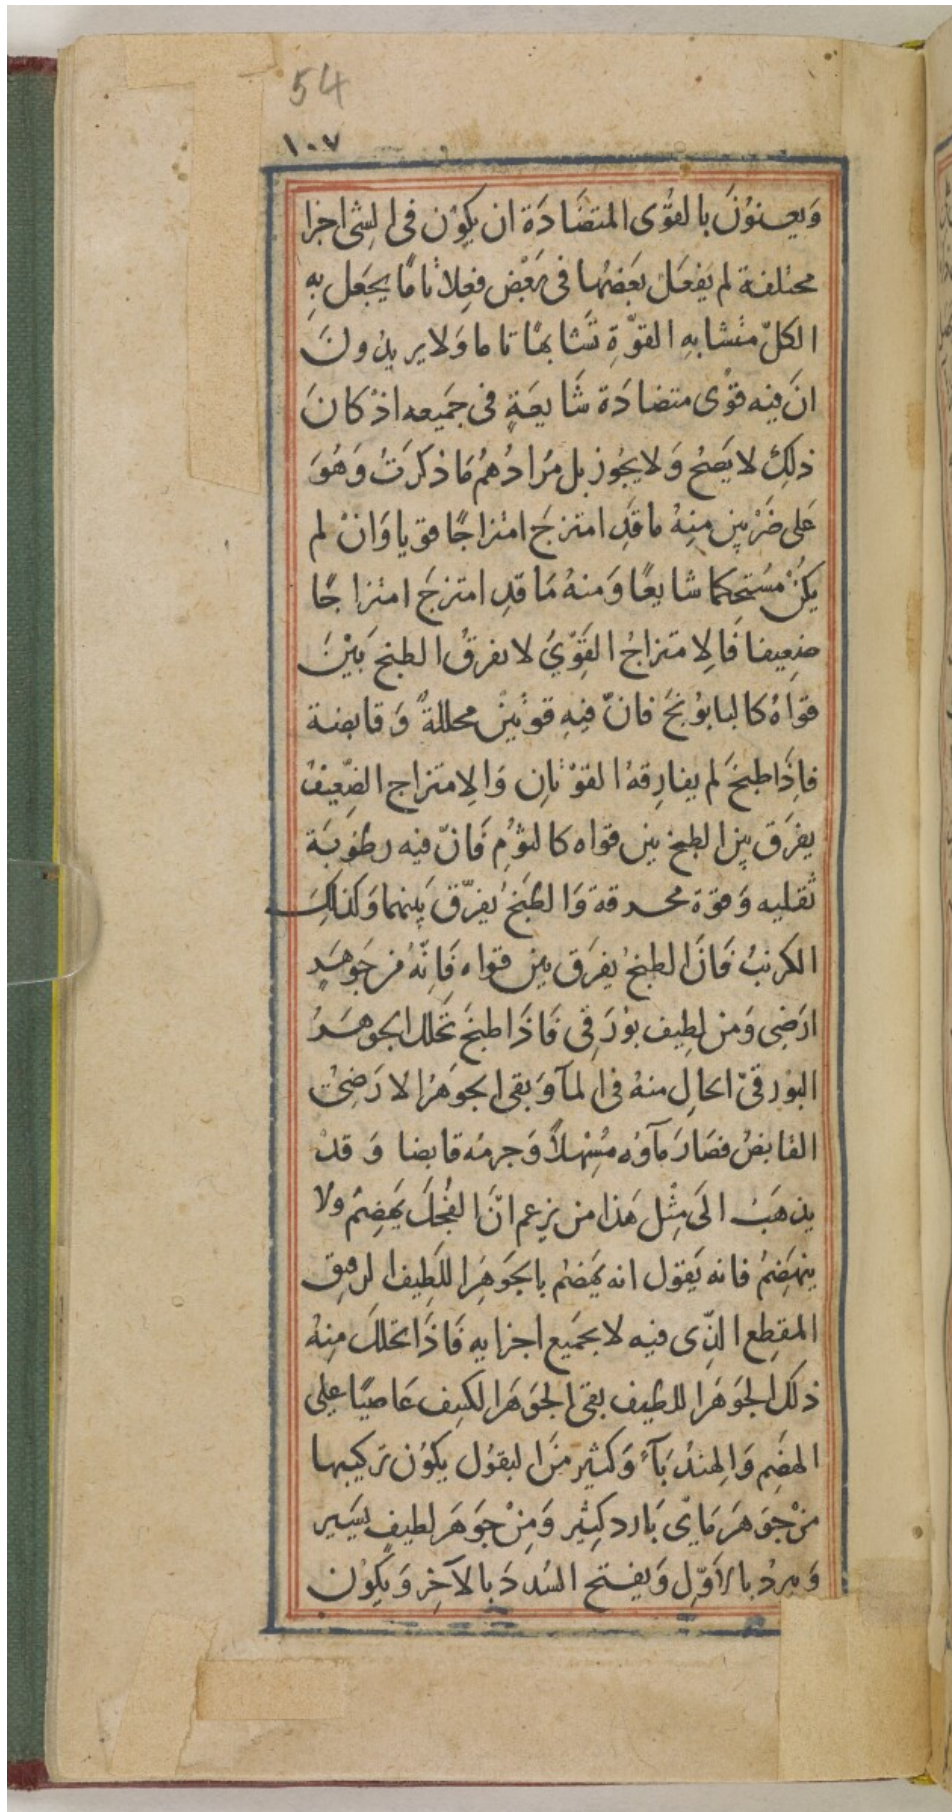 54
١٠٧
وَيعنوُنَ بالقوُّى المتضَادَة ان يكوُن فى الشى اجزا
مختلفة لم يَفعَل بَعَضُها فى بَعْض فِعلًا تامًا يجَعل بِهِ
الكلّ متشابهِ القوّةِ تشَابهًا تاما وَلا يريدُونَ
انَ فيه قوُى متضادَة شَايعَةٍ فى جَميعه اذْ كانَ
ذلِك لا يَصحُ وَلا يجُوز بل مُرادُهمُ مَا ذكرَتُ وَهُوَ
عَلى ضَرْبين منِهُ ما قَدِ امتزجَ امتزاجًا قويا وَانْ لم
يكنُ مسُتحكما شايعًا وَمنهُ مَا قدِ امتزجَ امتزاجًا
ضعِيفا فَالامتزاجُ القَوِّيُ لا يفرقُ الطبخ بَيْنَ
قواهُ كالبابوُنجَ فانّ فيِهِ قوتيْن محللةً وَقابضة
فاِذَا طبخَ لم يفارِقهُ القوْتاِن وَالاِمتزاج الضّعِيفُ
يفرَق بين الطبخ بين قواه كالثوُمِ فَانّ فيه رطوُبَة
ثقليه وَقوّة محرقة وَالطبَخُ يفرّق بَينهما وَكذلِكَ
الكرنبُ فَانَ الطبخُ يفرَق بين قواه فَاِنّهُ من جَوهَرٍ
ارَضِى وَمن لطِيف بوُرَقِى فَاذَا طبخَ تحَلل الجوهَرُ
البوُرقىّ الحالِ منهُ فى المآ وَبقى الجوَهَرُ الارَضىُّ
القابضُ فصَارَ مآوُه مُسْهلاً وَجرمُه قابضا وَقدْ
يذهَبُ الَى مِثْل هَذا من يزعم انّ الفُجلَ يَهضِمُ ولا
ينهَضِمُ فانه يَقول انه يَهضمُ بالجَوهَرِ اللَطِيف الرقيق
المقطِع الذِّى فيه لا بجَميع اجزايه فَاذَا تحَللَ منِهُ
ذلكَ الجوَهَر اللطيف بقى الجوَهَر الكثيف عَاصيًا على
الهضَمِ وَالهندُبَآءُ وَكثير منَ البقوُل يكوُن تركيبها
من جوَهَر مَايّى بَارد كثِير وَمِنْ جَوهَر لطيفٍ يسَير
وَيبردُ بالاَوّلِ وَيفتح السُددَ بالآخِر وَيكوُن